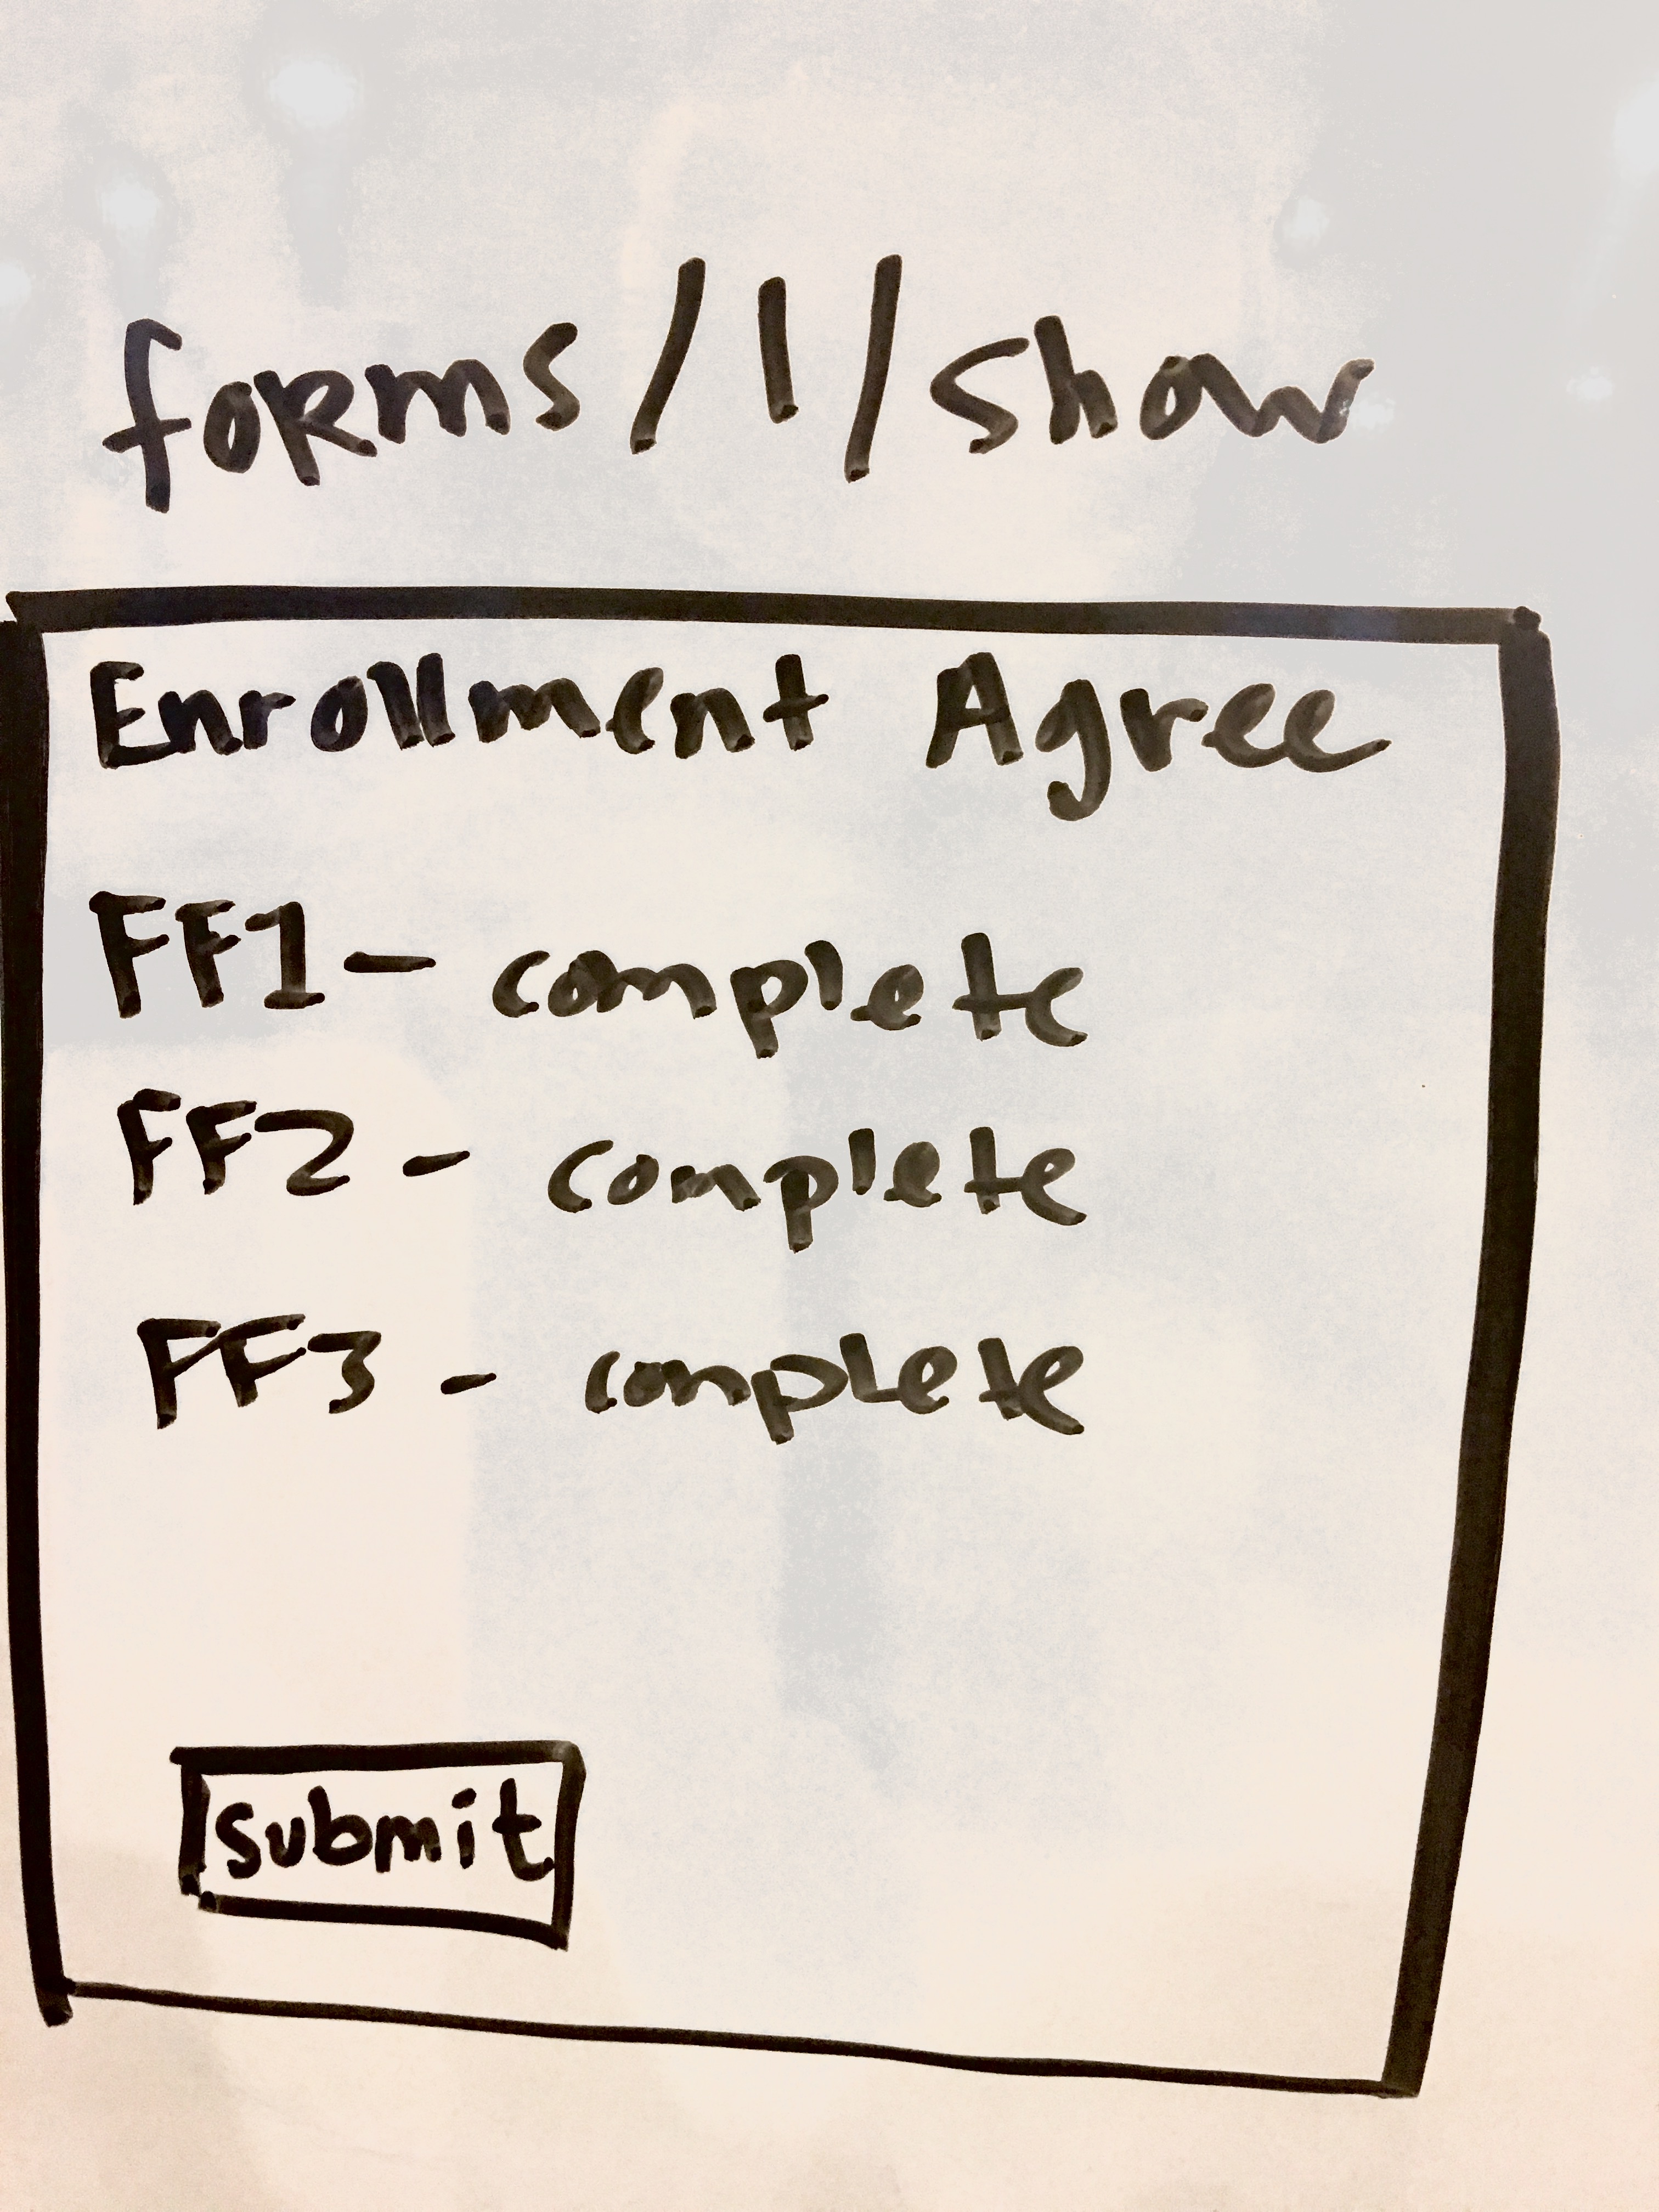 forms/1/show
Enrollment Agree
FF1 - complete
FF2 - complete
FF3 - complete
submit